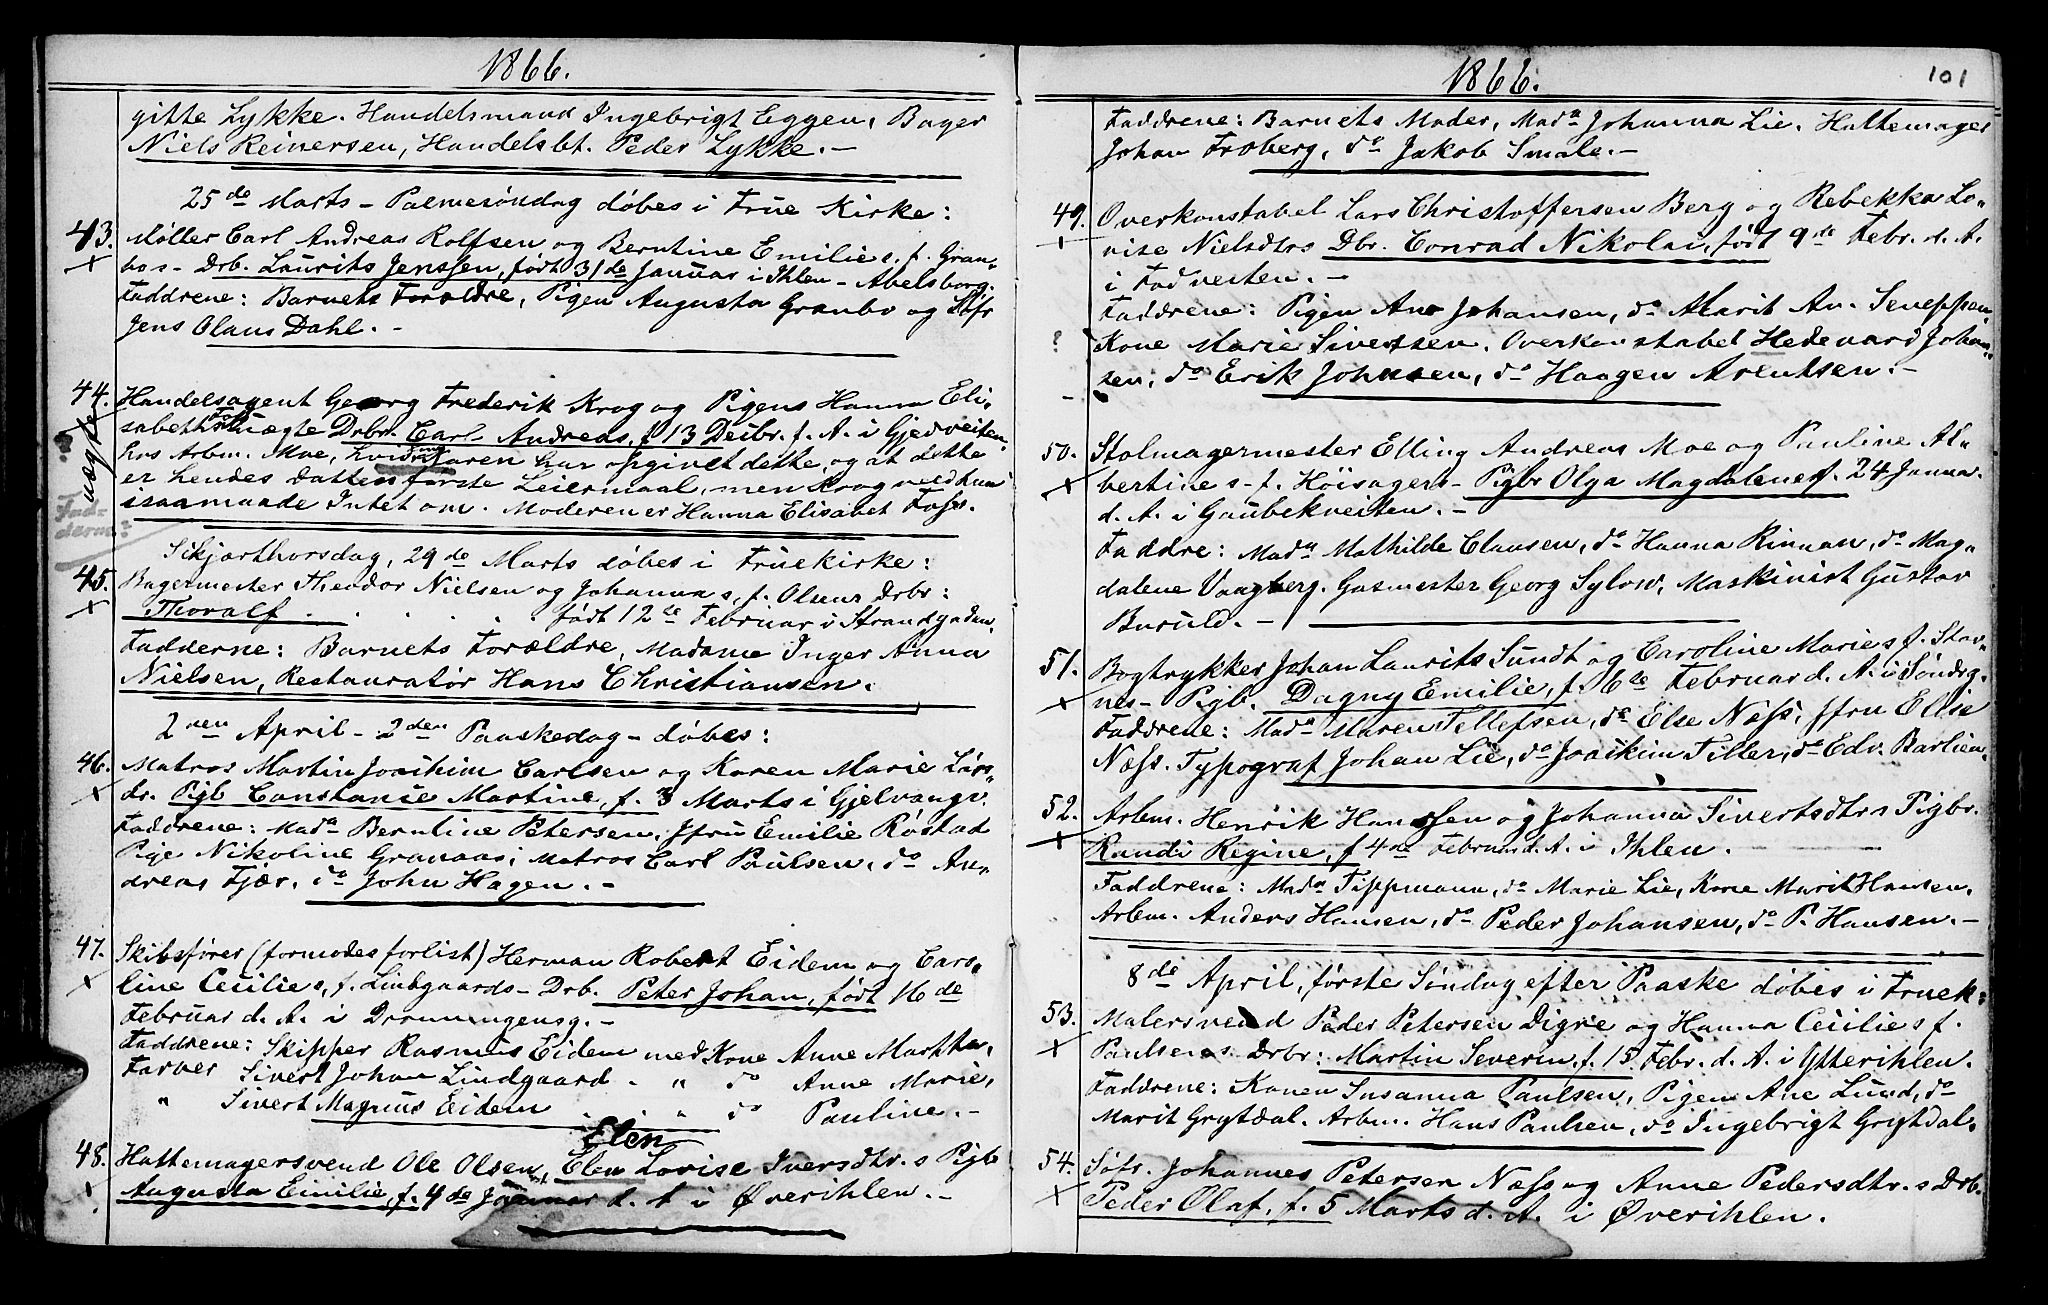 1866.
gitte Lykke. Handelsmand Ingebrigt Eggen, Bager
Niels Reinersen, Handelsbt. Peder Lykke. –
25de Marts – Palmesøndag døbes i Frue Kirke:
43. Møller Carl Andreas Rolfsen og Berntine Emilie s. f. Gran-
x bos – Drb. Laurits Jenssen, født 31/de Januar i Ihlen – Abelsborg.
Faddrene: Barnets Forældre, Pigen Augusta Granbo og Søfr
Jens Olaus Dahl. –
44. Handelsagent Georg Frederik Krog og Pigens Hanna Eli-
uægte
sabeth Foss uægte Drbr. Carl Andreas, f 13 Decbr. f. A. i Gjedveiten
hos Arbm. Moe, hvis
er hendes Datters første Leiermaal, men Krog veed hun
issaamaade Intet om. Moderen er Hanna Elisabet Foss.
Fad-
derne:
Skjærthorsdag, 29de Marts døbes i Fruekirke:
45. Bagermester Theodor Nielsen og Johanna s. f. Olsens Drbr:
x Thoralf . . . . født 12te Februar i Strandgaden.
Fadderne: Barnets Forældre, Madame Inger Anna
Nielsen, Restauratør Hans Christiansen.
2nen April – 2den Paaskedag – døbes:
46. Matros Martin Joachim Carlsen og Karen Marie Lars-
x dr. Pigb Constanse Martine, f. 3 Marts i Gjelvangv.
Faddrene: Mada Berntine Petersen, Jfru Emilie Røstad
Pige Nikoline Granaas; Matros Carl Paulsen, do An-
dreas Fjær, do John Hagen. –
47. Skibsfører (formodes forlist) Herman Robert Eidem og Caro-
x line Cecilie s. f. Lindgaards – Drb. Peter Johan, født 16de
Februar d. A. i Dronningensg. –
Faddrene: Skipper Rasmus Eidem med Kone Anne Martha,
Farver Sivert Johan Lindgaard . " do Anne Marie,
" Sivert Magnus Eidem . . " do Pauline. –
Elen
48. Hattemagersvend Ole Olsen, Elen Lovise Iversdtr. s Pigb
x Augusta Emilie, f. 4de Januar d. A i Øverihlen. –
1866.
101
Faddrene: Barnets Moder, Mada Johanna Lie. Hattemager
Johan Froberg, do Jakob Smale. –
49. Overkonstabel Lars Christoffersen Berg og Rebekka Lo-
x vise Nielsdtrs Dbr. Conrad Nikolai, født 9de Febr. d. A.
i Fadveiten. –
Faddrene: Pigen Ane Johansen, do Marit An.
? Kone Marie Sivertsen. Overkonstabel Hedevard Johan-
sen, do Erik Johnsen, do Haagen Arentsen. –
50. Stolmagermester Elling Andreas Moe og Pauline Al-
x bertine s – f. Höisagers – Pigbr Olga Magdalene f. 24 Janua.
d. A. i Gaubekveiten. –
Faddre: Mada Mathilde Clausen, do Hanna Rinnan, do Mag-
dalene Vangberg. Gasmester Georg Sylow, Maskinist Gustav
Buruld. –
51. Bogtrykker Johan Laurits Sundt og Caroline Marie s f. Stav-
x nes – Pigb. Dagny Emilie, f. 6te Februar d. A. i Søndrg.
Faddrene: Mada Maren Tellefsen, do Else Næss, Jfru Elise
Næss. Typograf Johan Lie, do Joakim Tiller, do Edv. Barlien.
52. Arbm. Henrik Hanssen og Johanna Sivertsdtrs Pigbr.
x Randi Regine, f 4de Februar d. A. i Ihlen.
Faddrene: Mada Tippmann, do Marie Lie, Kone Marit Hansen.
Arbm. Anders Hansen, do Peder Johansen, do P. Hansen. –
8de April, første Søndag efter Paaske døbes i Fruek:
53. Malersvend Peder Petersen Digre og Hanna Cecilie s f.
x Paulsens Drbr: Martin Severin f. 15 Febr. d. A. i Ytterihlen.
Faddrene: Konen Susanna Paulsen, Pigen Ane Lund, do
Marit Grytdal. Arbm. Hans Paulsen, do Ingebrigt Grytdal.
54. Søfr. Johannes Petersen Næss og Anne Pedersdtr. s Drb.
x Peder Olaf, f. 5 Marts d. A. i Øverihlen.